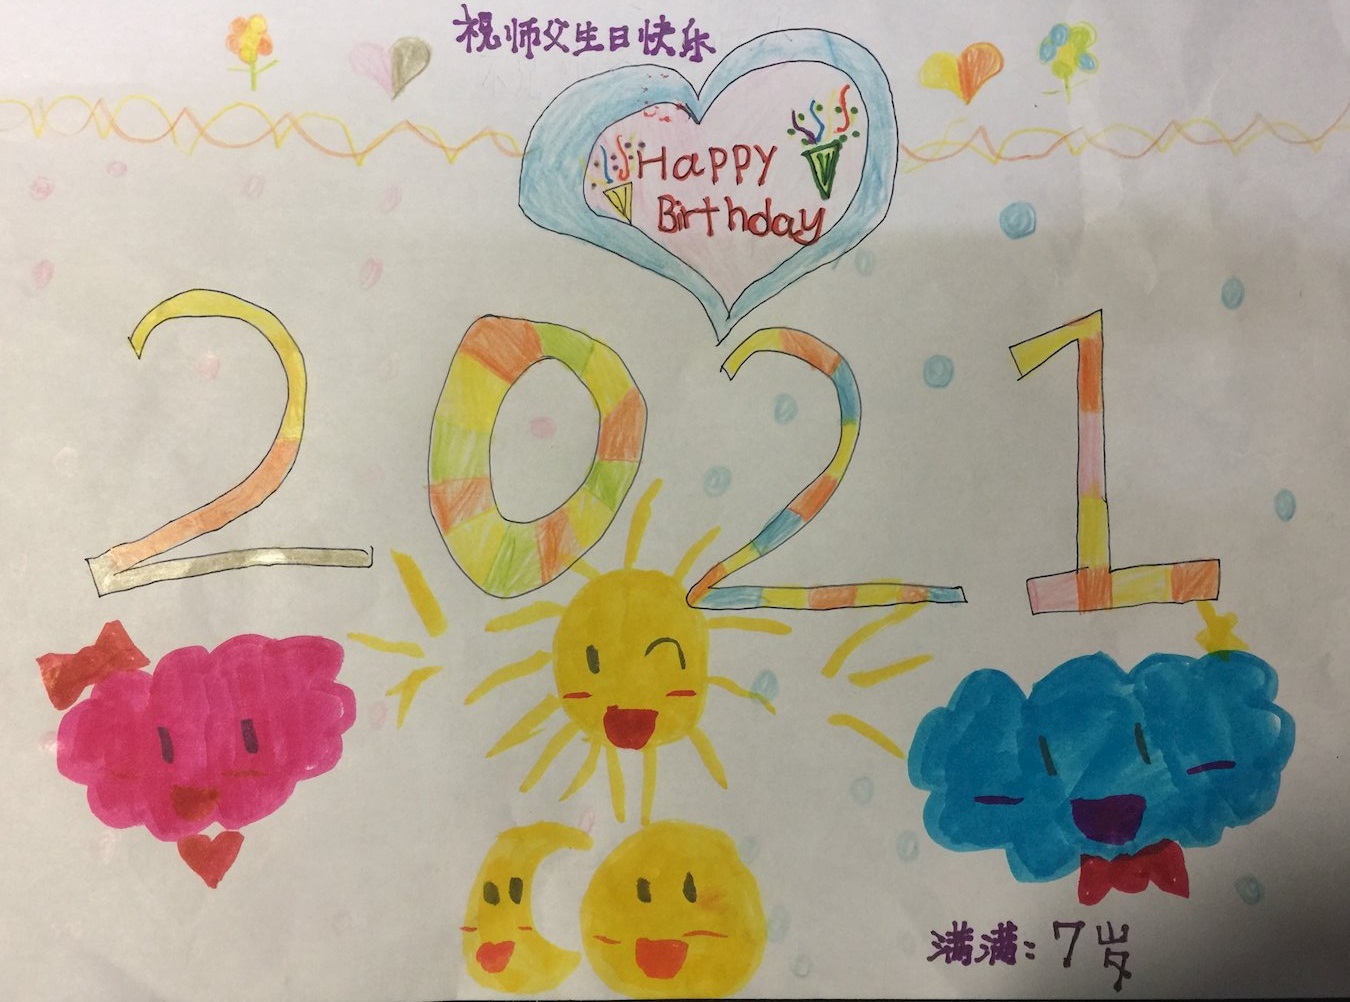 祝师父生日快乐
Happy
Birthday
2021
满满:7岁